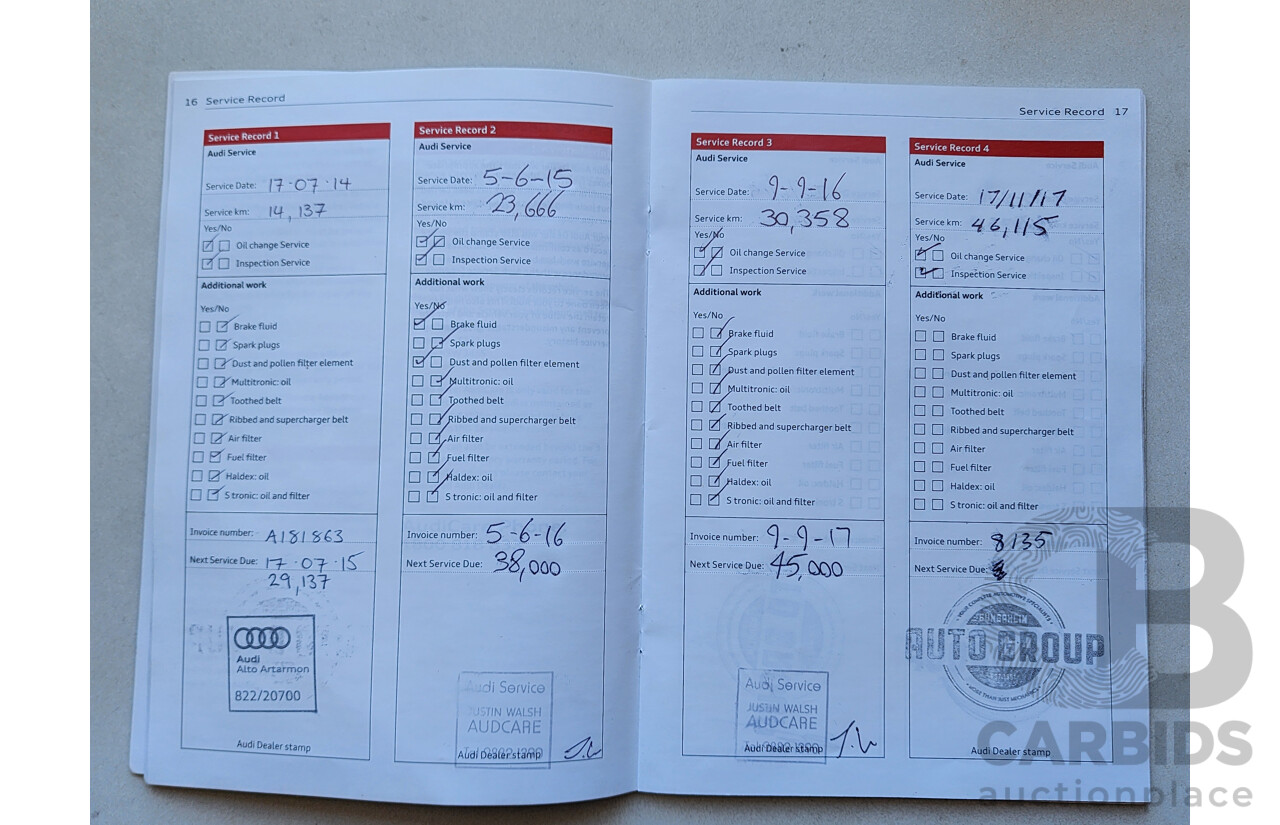 16 Service Record
Service Record 1
Audi Service
Service Date: 17·07·14
Service km: 14,137
Yes/No
Oil change Service
Inspection Service
Additional work
Yes/No
Brake fluid
Spark plugs
Dust and pollen filter element
Multitronic: oil
Toothed belt
Ribbed and supercharger belt
Air filter
Fuel filter
Haldex: oil
S tronic: oil and filter
Invoice number: A181863
Next Service Due: 17·07·15
29,137
Audi
Alto Artarmon
822/20700
Audi Dealer stamp
Service Record 2
Audi Service
Service Date: 5-6-15
Service km: 23,666
Yes/No
Oil change Service
Inspection Service
Additional work
Yes/No
Brake fluid
Spark plugs
Dust and pollen filter element
Multitronic: oil
Toothed belt
Ribbed and supercharger belt
Air filter
Fuel filter
Haldex: oil
S tronic: oil and filter
Invoice number: 5-6-16
Next Service Due: 38,000
Audi Service
JUSTIN WALSH
AUDCARE
Audi Dealer stamp
Service Record 17
Service Record 3
Audi Service
Service Date: 9-9-16
Service km: 30,358
Yes/No
Oil change Service
Inspection Service
Additional work
Yes/No
Brake fluid
Spark plugs
Dust and pollen filter element
Multitronic: oil
Toothed belt
Ribbed and supercharger belt
Air filter
Fuel filter
Haldex: oil
S tronic: oil and filter
Invoice number: 9-9-17
Next Service Due: 45,000
Audi Service
JUSTIN WALSH
AUDCARE
Audi Dealer stamp
Service Record 4
Audi Service
Service Date: 17/11/17
Service km: 46,115
Yes/No
Oil change Service
Inspection Service
Additional work
Yes/No
Brake fluid
Spark plugs
Dust and pollen filter element
Multitronic: oil
Toothed belt
Ribbed and supercharger belt
Air filter
Fuel filter
Haldex: oil
S tronic: oil and filter
Invoice number: 8135
Next Service Due:
YOUR COMPLETE AUTOMOTIVE SPECIALISTS
AUTO GROUP
MORE THAN JUST MECHANICS
Audi Dealer stamp
CARBIDS
auctionplace